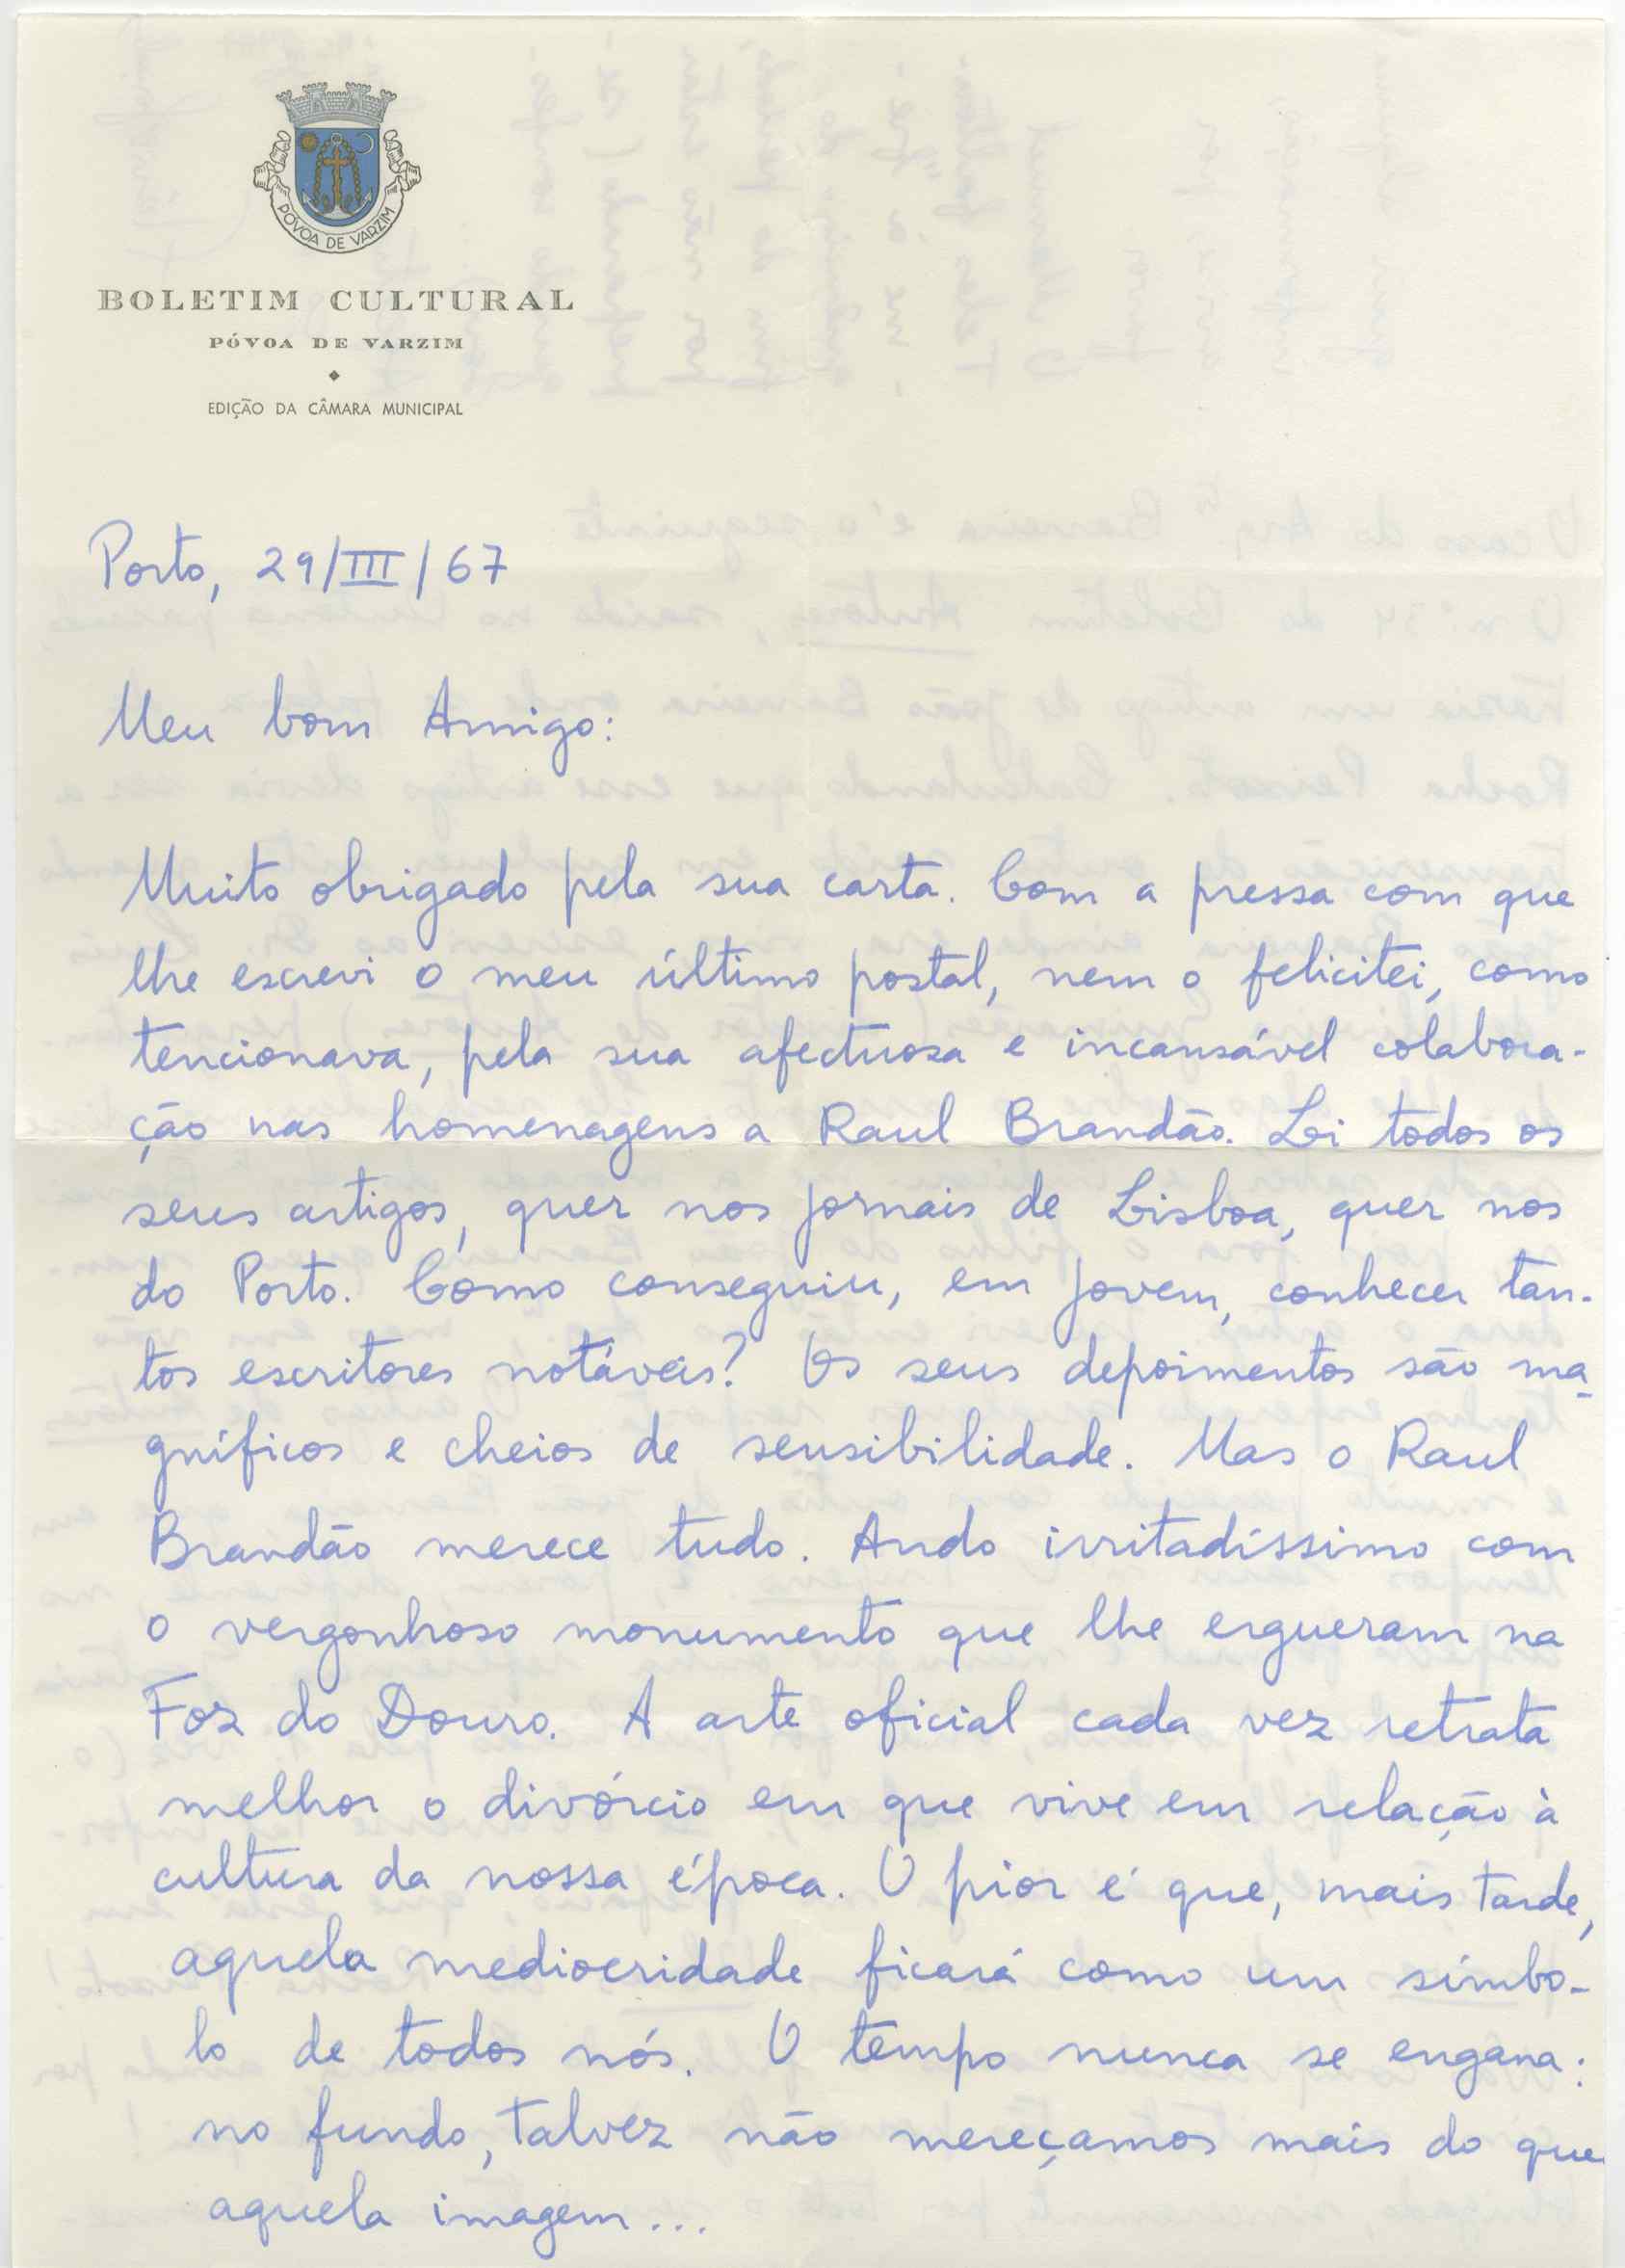 PÓVOA DE VARZIM
BOLETIM CULTURAL
PÓVOA DE VARZIM
EDIÇÃO DA CÂMARA MUNICIPAL
Porto, 29/III/67
Meu bom Amigo:
Muito obrigado pela sua carta. Com a pressa com que
lhe escrevi o meu último postal, nem o felicitei, como
tencionava, pela sua afectuosa e incansável colabora-
ção nas homenagens a Raul Brandão. Li todos os
seus artigos, quer nos jornais de Lisboa, quer nos
do Porto. Como conseguiu, em jovem, conhecer tan-
tos escritores notáveis? Os seus depoimentos são ma-
gníficos e cheios de sensibilidade. Mas o Raul
Brandão merece tudo. Ando irritadíssimo com
o vergonhoso monumento que lhe ergueram na
Foz do Douro. A arte oficial cada vez retrata
melhor o divórcio em que vive em relação à
cultura da nossa época. O pior é que, mais tarde,
aquela mediocridade ficará como um símbo-
lo de todos nós. O tempo nunca se engana:
no fundo, talvez não mereçamos mais do que
aquela imagem...